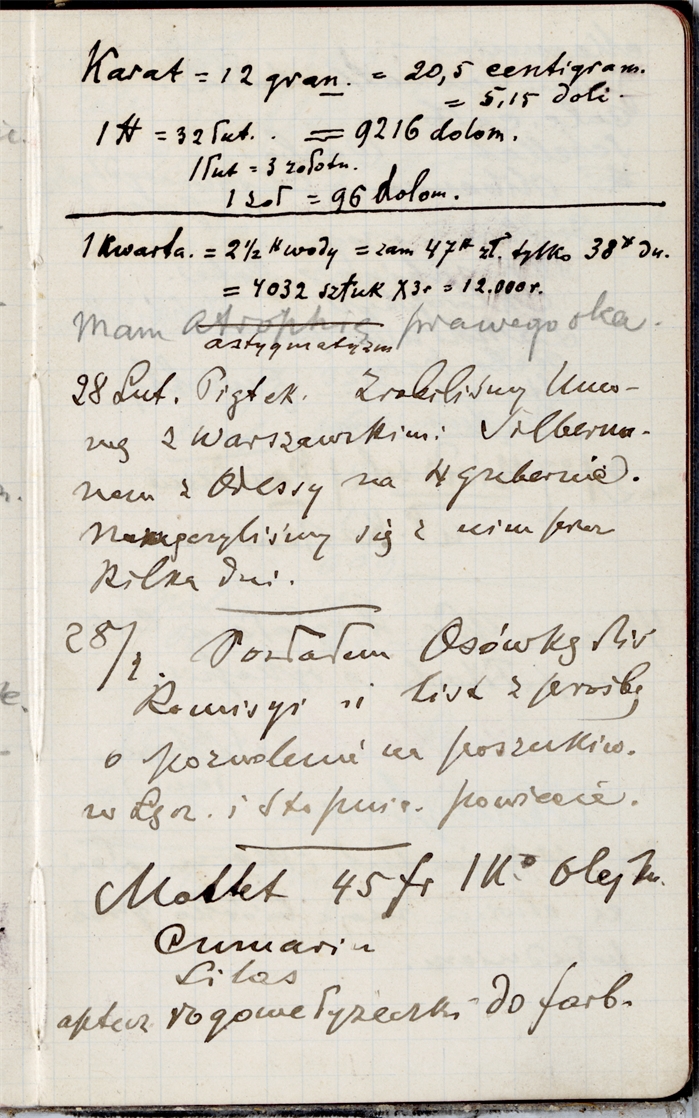 Karat = 12 gran. = 20,5 centigram.
= 5,15 doli.
1 ℔ = 32 łut. = 9216 dolom.
1 łut = 3 zołotn.
1 zoł = 96 dolom.
1 Kwarta. = 2½ ℔ wody = zam 47 zł. tylko 38 du.
= 4032 sztuk X 3r = 12.000 r.
Mam atrophię prawego oka.
astygmatyzm
28 Lut. Piątek. Zrobiliśmy Umo-
wę z Warszawskim i Silberma-
nem z Odessy na 4 gubernie.
się z nim przez
Kilka dni.
28/2. Posłałem Osówkę do
Komisyi i list z prośbą
o pozwolenie na poszukiw.
w Łgor. i Stopnic. powiecie.
Mottet 45 fr 1 Ko olejk.
Cumarin
Lilas
aptecz rogowe łyżeczki do farb.